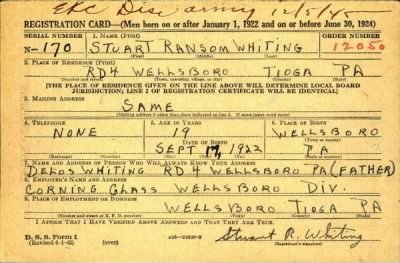 ERC Disc army 12/5/45
REGISTRATION CARD—(Men born on or after January 1, 1922 and on or before June 30, 1924)
SERIAL NUMBER 1. NAME ORDER NUMBER
N-170 STUART RANSOM WHITING 12050
2. PLACE OF RESIDENCE
RD4 WELLSBORO TIOGA PA
[THE PLACE OF RESIDENCE GIVEN ON THE LINE ABOVE WILL DETERMINE LOCAL BOARD
JURISDICTION; LINE 2 OF REGISTRATION CERTIFICATE WILL BE IDENTICAL]
3. MAILING ADDRESS
SAME
[Mailing address if other than place indicated on line 2. If same insert word same]
4. TELEPHONE 5. AGE IN YEARS 6. PLACE OF BIRTH
NONE 19 WELLSBORO
DATE OF BIRTH
SEPT 17, 1922 PA
7. NAME AND ADDRESS OF PERSON WHO WILL ALWAYS KNOW YOUR ADDRESS
DELOS WHITING RD 4 WELLSBORO PA (FATHER)
8. EMPLOYER'S NAME AND ADDRESS
CORNING GLASS WELLSBORO DIV.
9. PLACE OF EMPLOYMENT OR BUSINESS
WELLSBORO TIOGA PA
I AFFIRM THAT I HAVE VERIFIED ABOVE ANSWERS AND THAT THEY ARE TRUE.
D. S. S. Form 1
(Revised 6-1-42) (over) Stuart R. Whiting
(Registrant's signature)